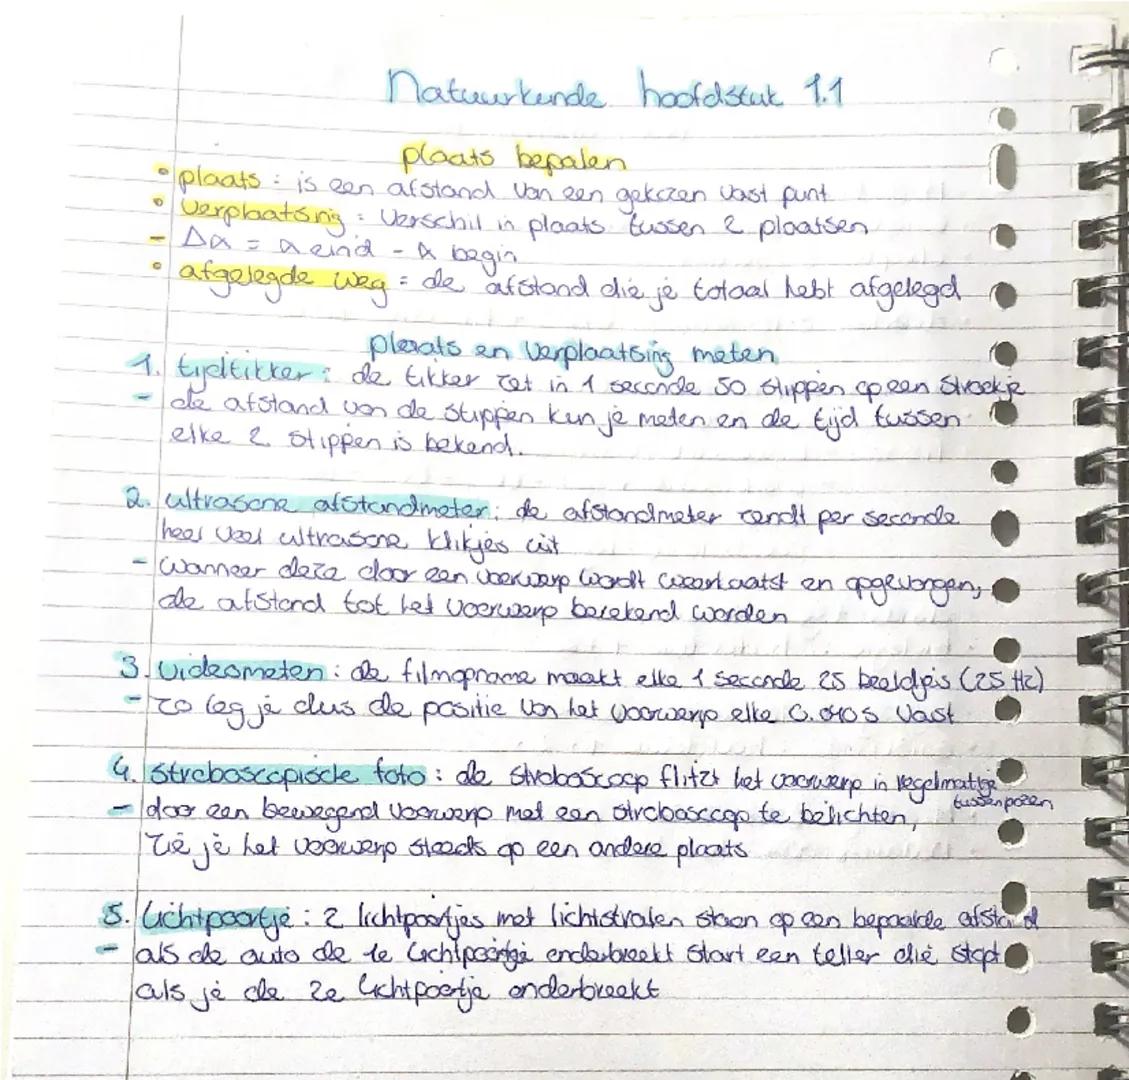 Natuurkunde hoofdstuk 1.1
plaats bepalen
• plaats : is een afstand van een gekozen vast punt
• verplaatsing : verschil in plaats tussen 2 plaatsen
- Δx = x eind - x begin
• afgelegde weg : de afstand die je totaal hebt afgelegd
plaats en verplaatsing meten
1. tijdtikker : de tikker zet in 1 seconde 50 stippen op een strookje
- de afstand von de stippen kun je meten en de tijd tussen
elke 2 stippen is bekend.
2. ultrasone afstandmeter : de afstandmeter zendt per seconde
heel veel ultrasone klikjes uit
- wanneer deze door een voorwerp wordt weerkaatst en opgevangen,
de afstand tot het voorwerp berekend worden
3. Videometen : de filmopname maakt elke 1 seconde 25 beeldjes (25 Hz)
- zo leg je dus de positie van het voorwerp elke 0.040 s vast
4. stroboscopische foto : de stroboscoop flitzt het voorwerp in regelmatige
tussenpozen
- door een bewegend voorwerp met een stroboscoop te belichten,
zie je het voorwerp steeds op een andere plaats
5. lichtpoortje : 2 lichtpoortjes met lichtstralen staan op een bepaalde afstand
- als de auto de 1e lichtpoortje onderbreekt start een teller die stopt
als je de 2e lichtpoortje onderbreekt